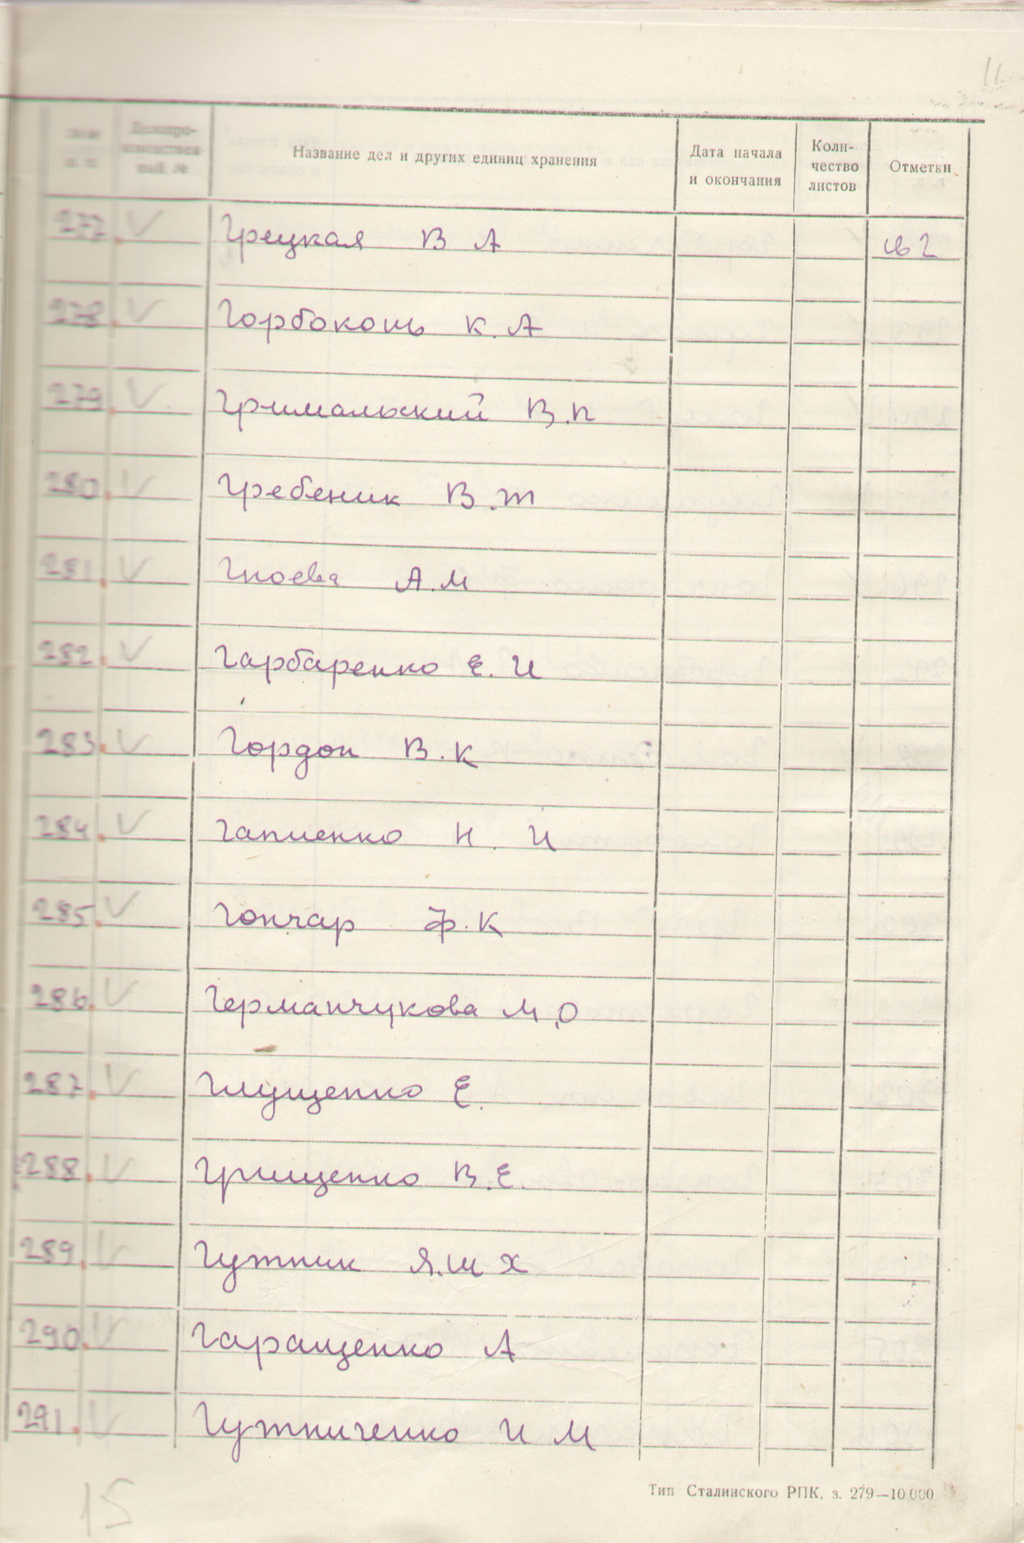 11
№№ п. п. | Делопро-изводствен-ный № | Название дел и других единиц хранения | Дата начала и окончания | Коли-чество листов | Отметки
277. V Грецкая В А св 2
278. V Горбоконь К. А
279. V Гримальский В. П
280. V Гребеник В. Т
281. V Гноева А. М
282. V Гарбаренко Е. И
283. V Гордон В. К
284. V Гапиенко Н. И
285. V Гончар Ф. К
286. V Германчукова М. О
287. V Глущенко Е.
288. V Грищенко В. Е.
289. V Гутник Я. Ш Х
290. V Гаращенко А
291. V Гутниченко И М
Тип Сталинского РПК, з. 279—10.000
15